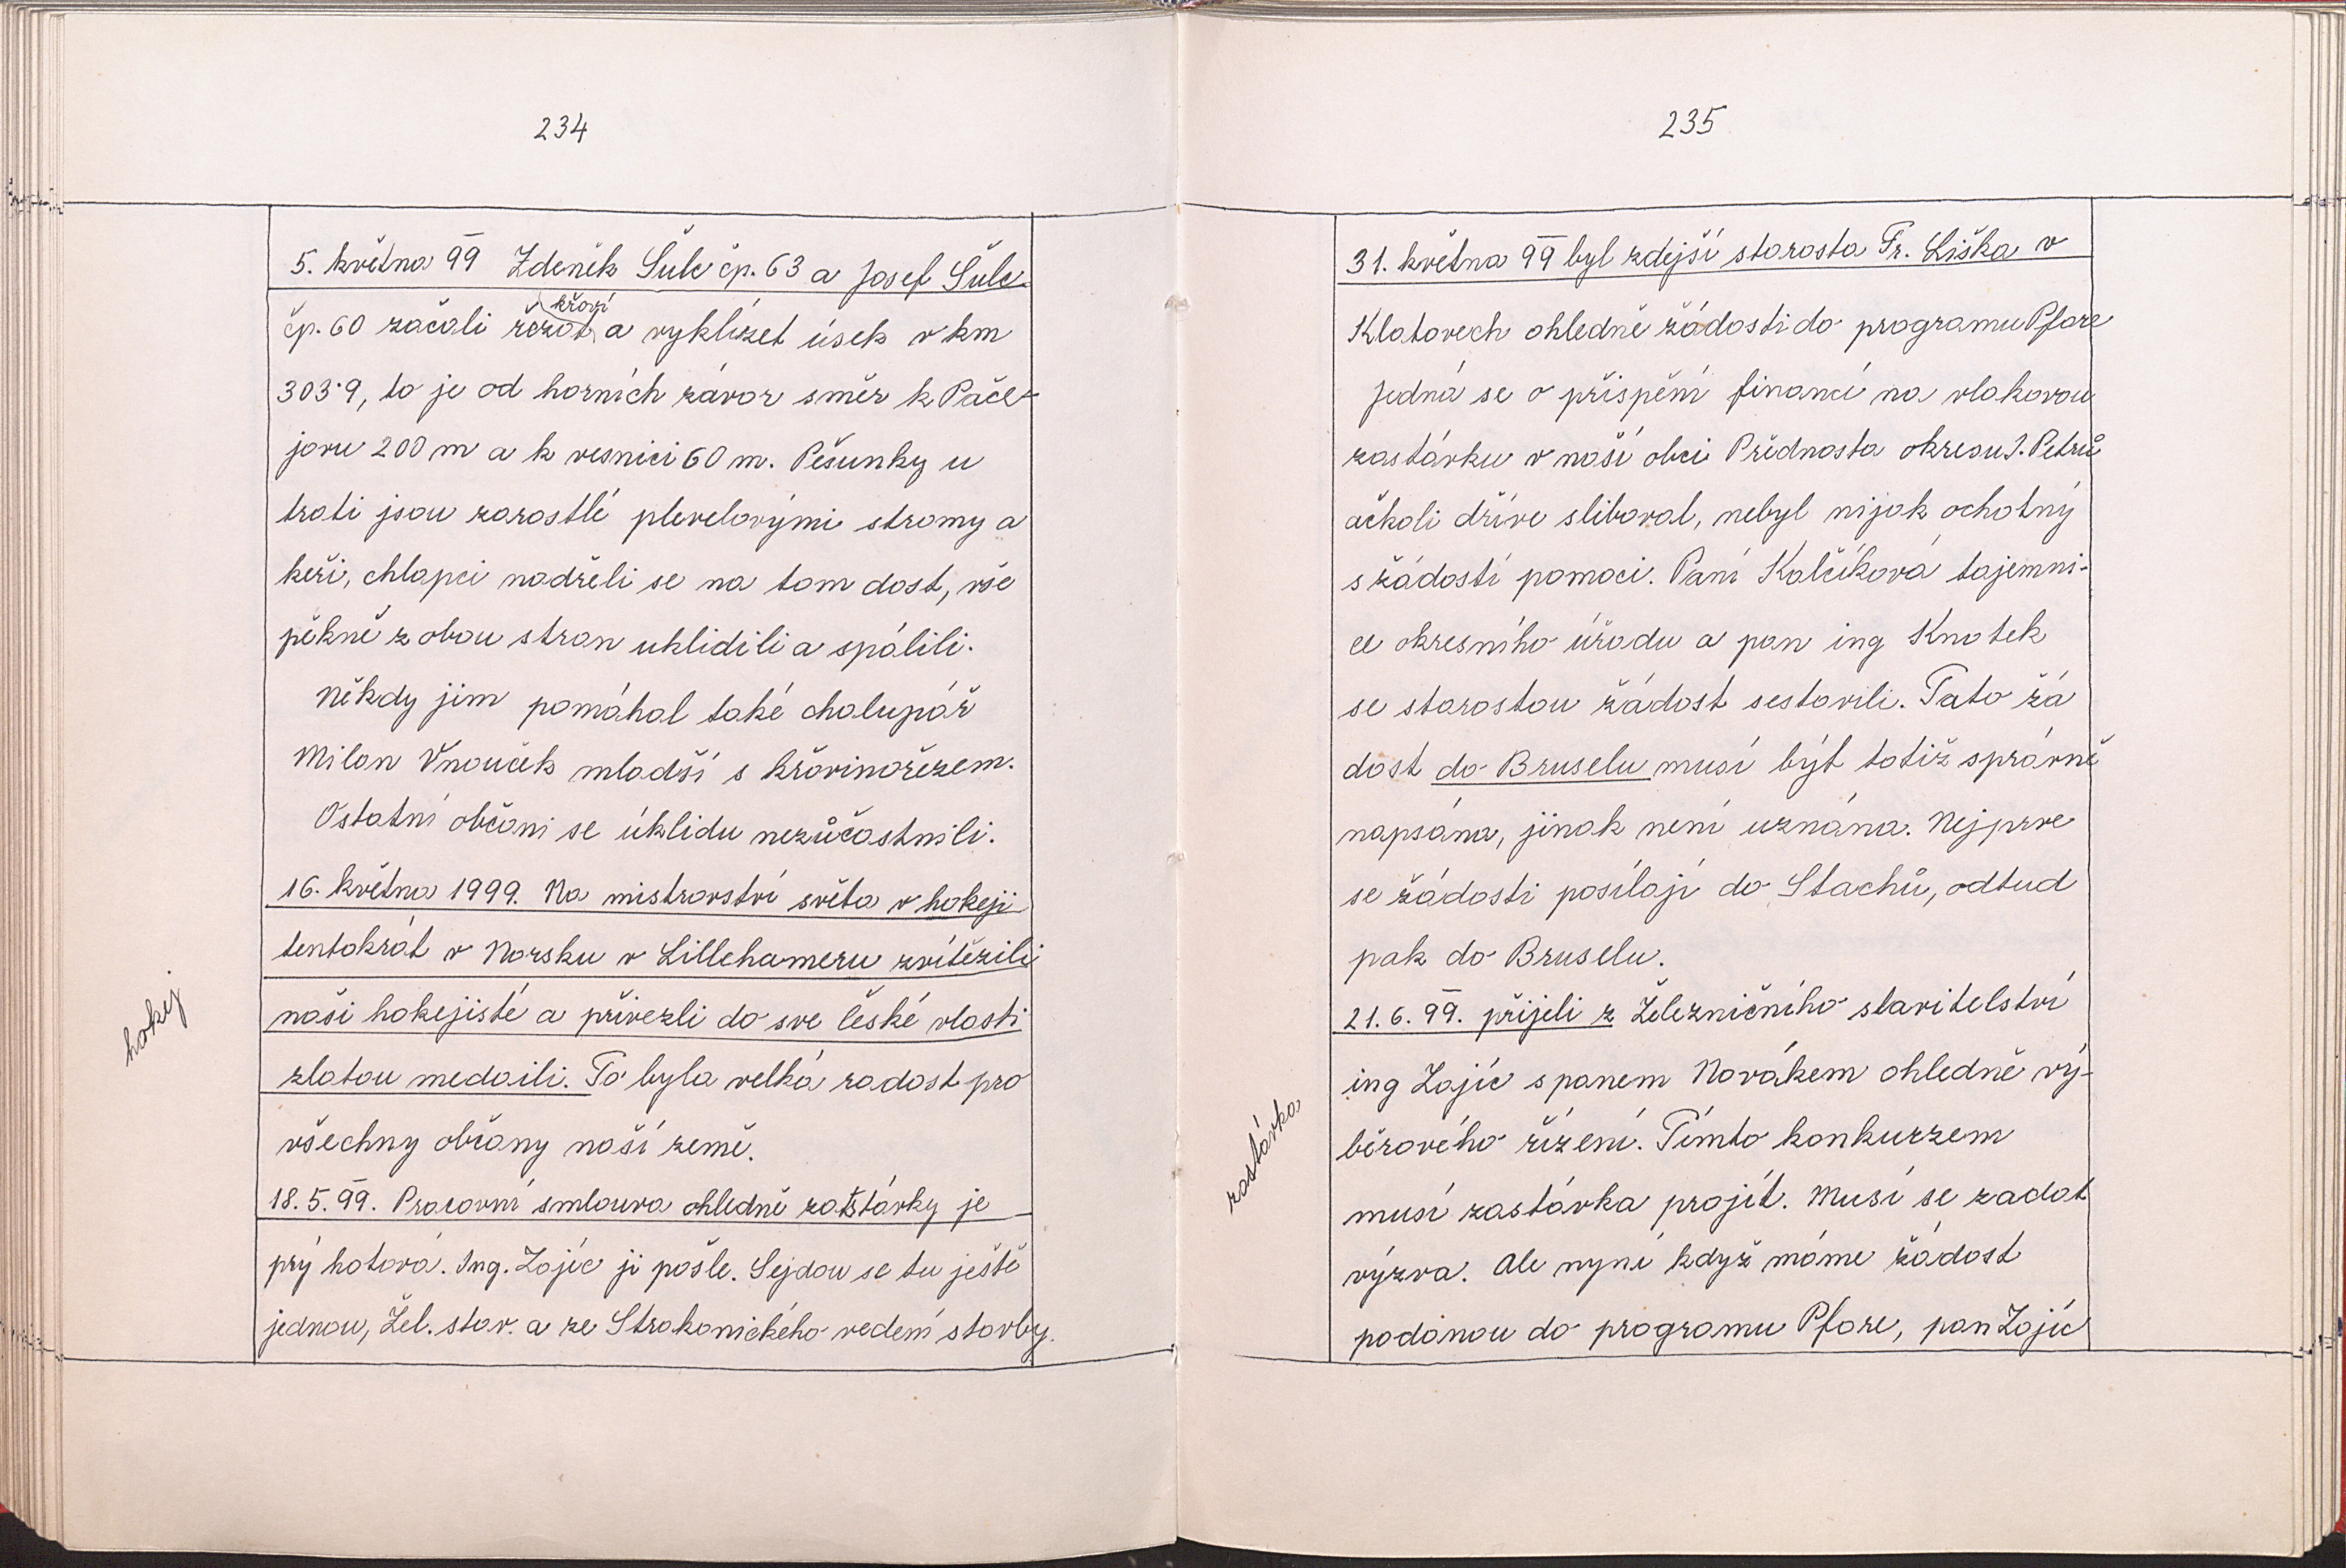 234
5. května 99 Zdeněk Šulc čp. 63 a Josef Šulc
křoví
čp. 60 začali řezat a vyklízet úsek v km
303·9, to je od horních závor směr k Pače-
jovu 200 m a k vesnici 60 m. Pěšunky u
trati jsou zarostlé plevelovými stromy a
keři, chlapci nadřeli se na tom dost, vše
pěkně z obou stran uklidili a spálili.
Někdy jim pomáhal také chalupář
Milan Vnouček mladší s křovinořezem.
Ostatní občani se úklidu nezůčastnili.
16. května 1999. Na mistrovství světa v hokeji
tentokrát v Norsku v Lillehameru zvítězili
naši hokejisté a přivezli do sve české vlasti
hokej
zlatou medaili. To byla velká radost pro
všechny občany naší země.
18. 5. 99. Pracovní smlouva ohledně zastávky je
prý hotová. Ing. Zajíc ji pošle. Sejdou se tu ještě
jednou, Žel. stav. a ze Strakonického vedení stavby.
235
31. května 99 byl zdejší starosta Fr. Liška v
Klatovech ohledně žádosti do programu Pfare
Jedná se o přispění financí na vlakovou
zastávku v naší obci Přednosta okresu J. Petrů
ačkoli dříve sliboval, nebyl nijak ochotný
s žádostí pomoci. Paní Kalčíková tajemni-
ce okresního úřadu a pan ing Knotek
se starostou žádost sestavili. Tato žá
dost do Bruselu musí být totiž správně
napsána, jinak není uznána. Nejprve
se žádosti posílají do Stachů, odtud
pak do Bruselu.
21. 6. 99. přijeli z Železničního stavitelství
ing Zajíc s panem Novákem ohledně vý-
zastávka
běrového řízení. Tímto konkurzem
musí zastávka projít. Musí se zadat
výzva. Ale nyní když máme žádost
podanou do programu Pfare, pan Zajíc